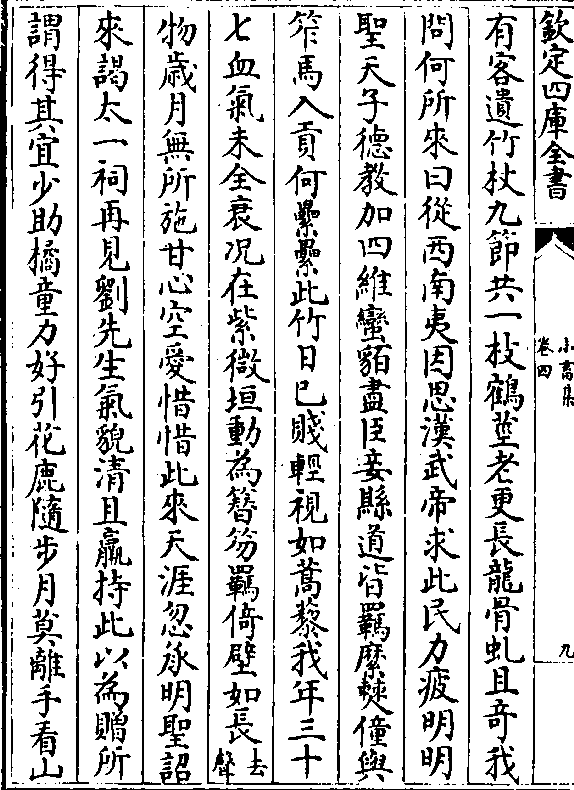 欽定四庫全書
小畜集
卷四
九
有客遺竹杖九節共一枝鶴莖老更長龍骨虬且竒我
問何所來曰從西南夷因思漢武帝求此民力疲明明
聖天子德教加四維蠻貊盡臣妾縣道皆羈縻僰僮與
笮馬入貢何纍纍此竹日已賤輕視如蒿藜我年三十
七血氣未全衰況在紫微垣動為簪笏羈倚壁如長去聲
物歳月無所施甘心空愛惜惜此來天涯忽承明聖詔
來謁太一祠再見劉先生氣貌清且羸持此以為贈所
謂得其宜少助橘童力好引花鹿隨步月莫離手看山